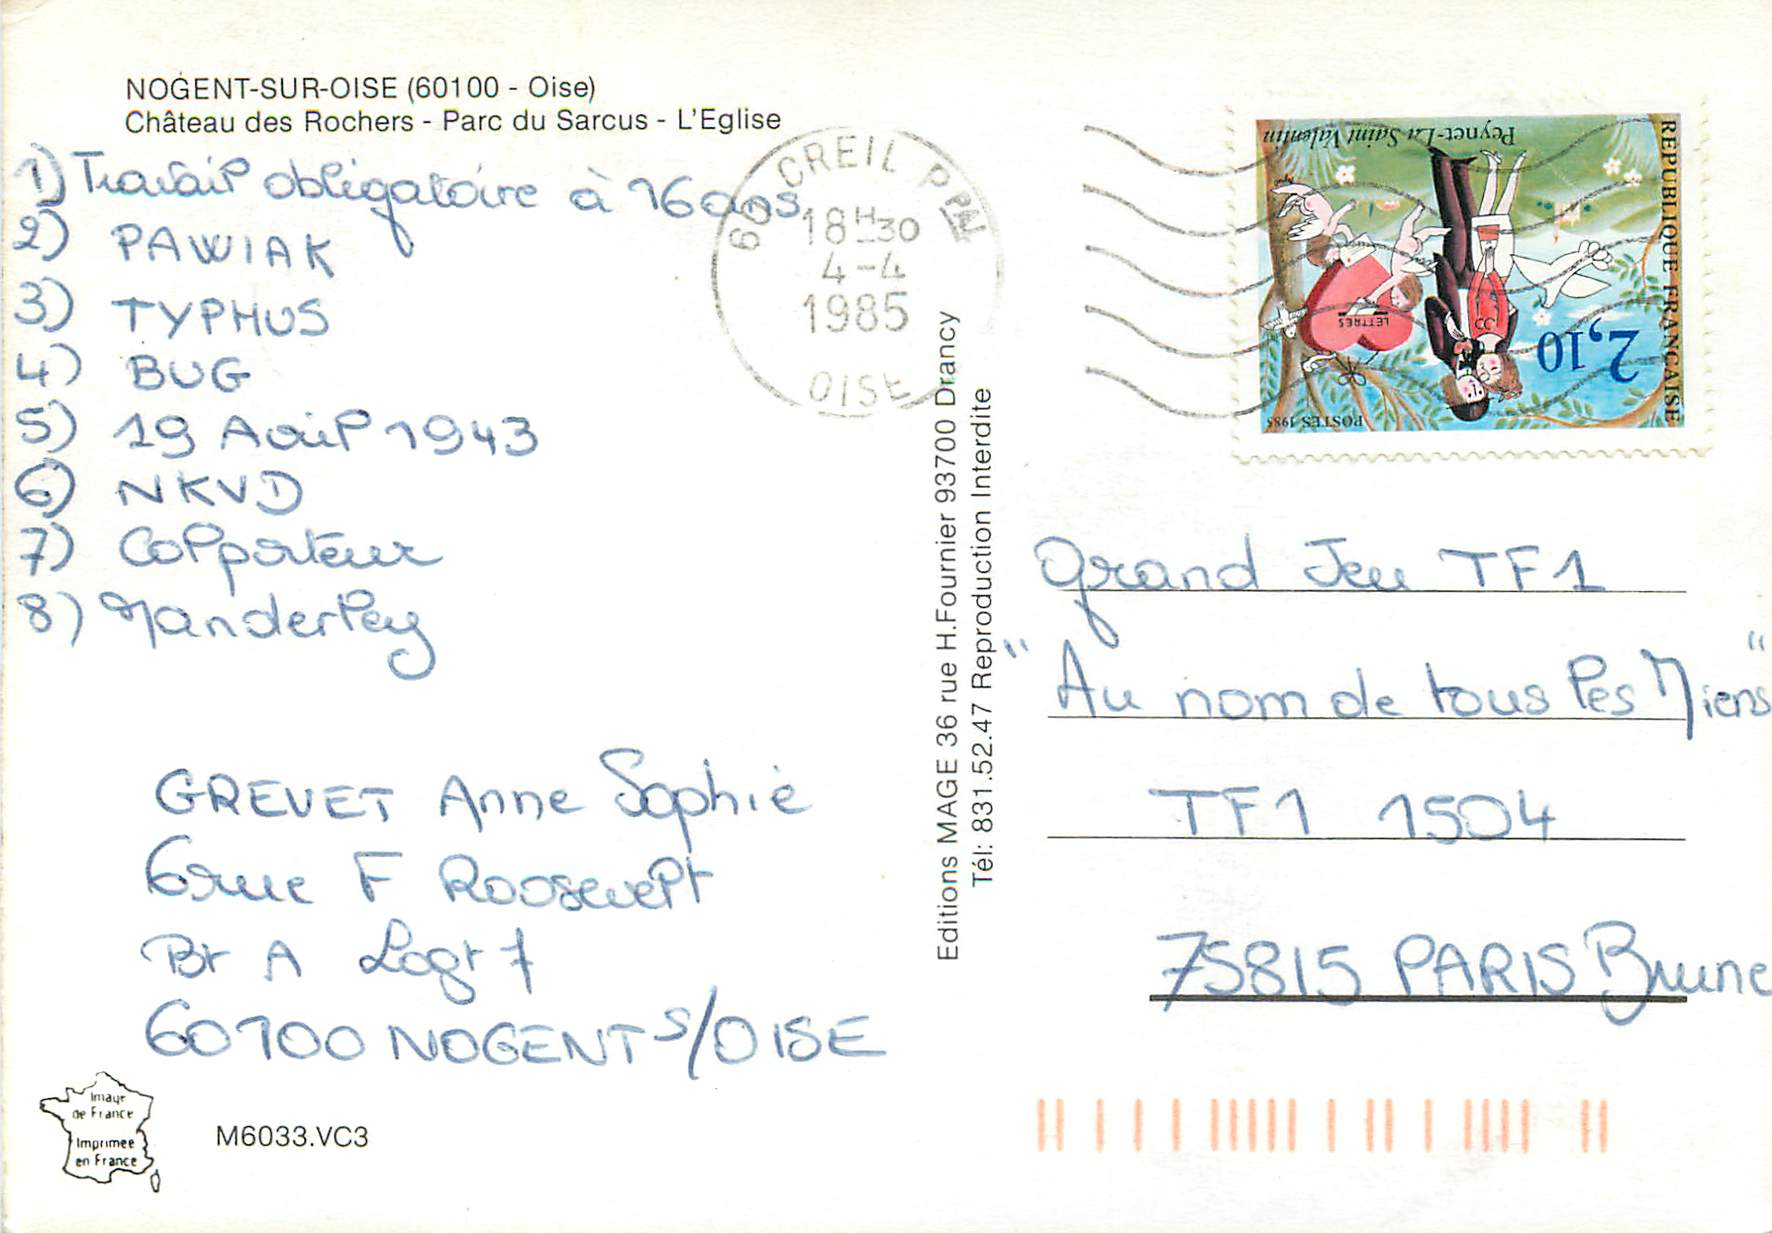 NOGENT-SUR-OISE (60100 - Oise)
Château des Rochers - Parc du Sarcus - L'Eglise
1) Travail obligatoire à 16 ans
2) PAWIAK
3) TYPHUS
4) BUG
5) 19 Août 1943
6) NKVD
7) Colporteur
8) Manderley
GREVET Anne Sophie
6 rue F Roosevelt
Bt A Logt 7
60100 NOGENT S/OISE
Image
de France
Imprimee
en France
M6033.VC3
60 CREIL PPAL
18H30
4-4
1985
OISE
Editions MAGE 36 rue H.Fournier 93700 Drancy
Tél: 831.52.47 Reproduction Interdite
REPUBLIQUE FRANÇAISE
Peynet-La Saint Valentin
2,10
LETTRES
POSTES 1985
Grand Jeu TF1
"Au nom de tous les Miens"
TF1 1504
75815 PARIS Brune